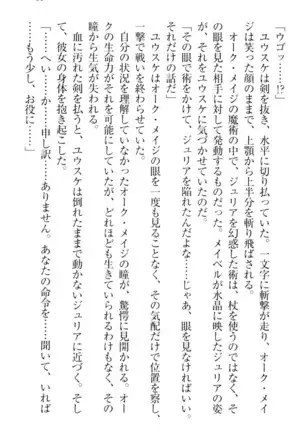 「ウゴッ……!?」
ユウスケは剣を抜き、水平に切り払っていた。一文字に斬撃が走り、オーク・メイ
ジは笑った顔のままで、上顎から上半分を斬り飛ばされる。
オーク・メイジの魔術の中で、ジュリアを幻惑した術は、杖を使うのではなく、そ
の眼を見た相手に対して発動するものだった。メイベルが水晶に映したジュリアの姿
を見て、ユウスケはそれに気づかせていたのだ。
「眼を見せることをきっかけにして、ジュリアを陥れたんだよな……じゃあ、眼を見なければいい。
それだけの話だ」
ユウスケはオーク・メイジの眼を一度も見ることなく、その気配だけで位置を察し、
一撃で戦いを終わらせていた。
自分の状況を理解していなかったオーク・メイジの瞳が、驚愕に見開かれる。オー
クの生命力がそれを可能にしていたが、どれほども生きていられるわけもなく、その
瞳から生気が失われる。
血に汚れた剣を払うと、ユウスケは倒れたままで動かないジュリアに近づく。そし
て、彼女の身体を抱き起こした。
「……へい……か……申し訳……ありません。あなたの命令を……聞いて、いれば
……もう少し、お役に……」